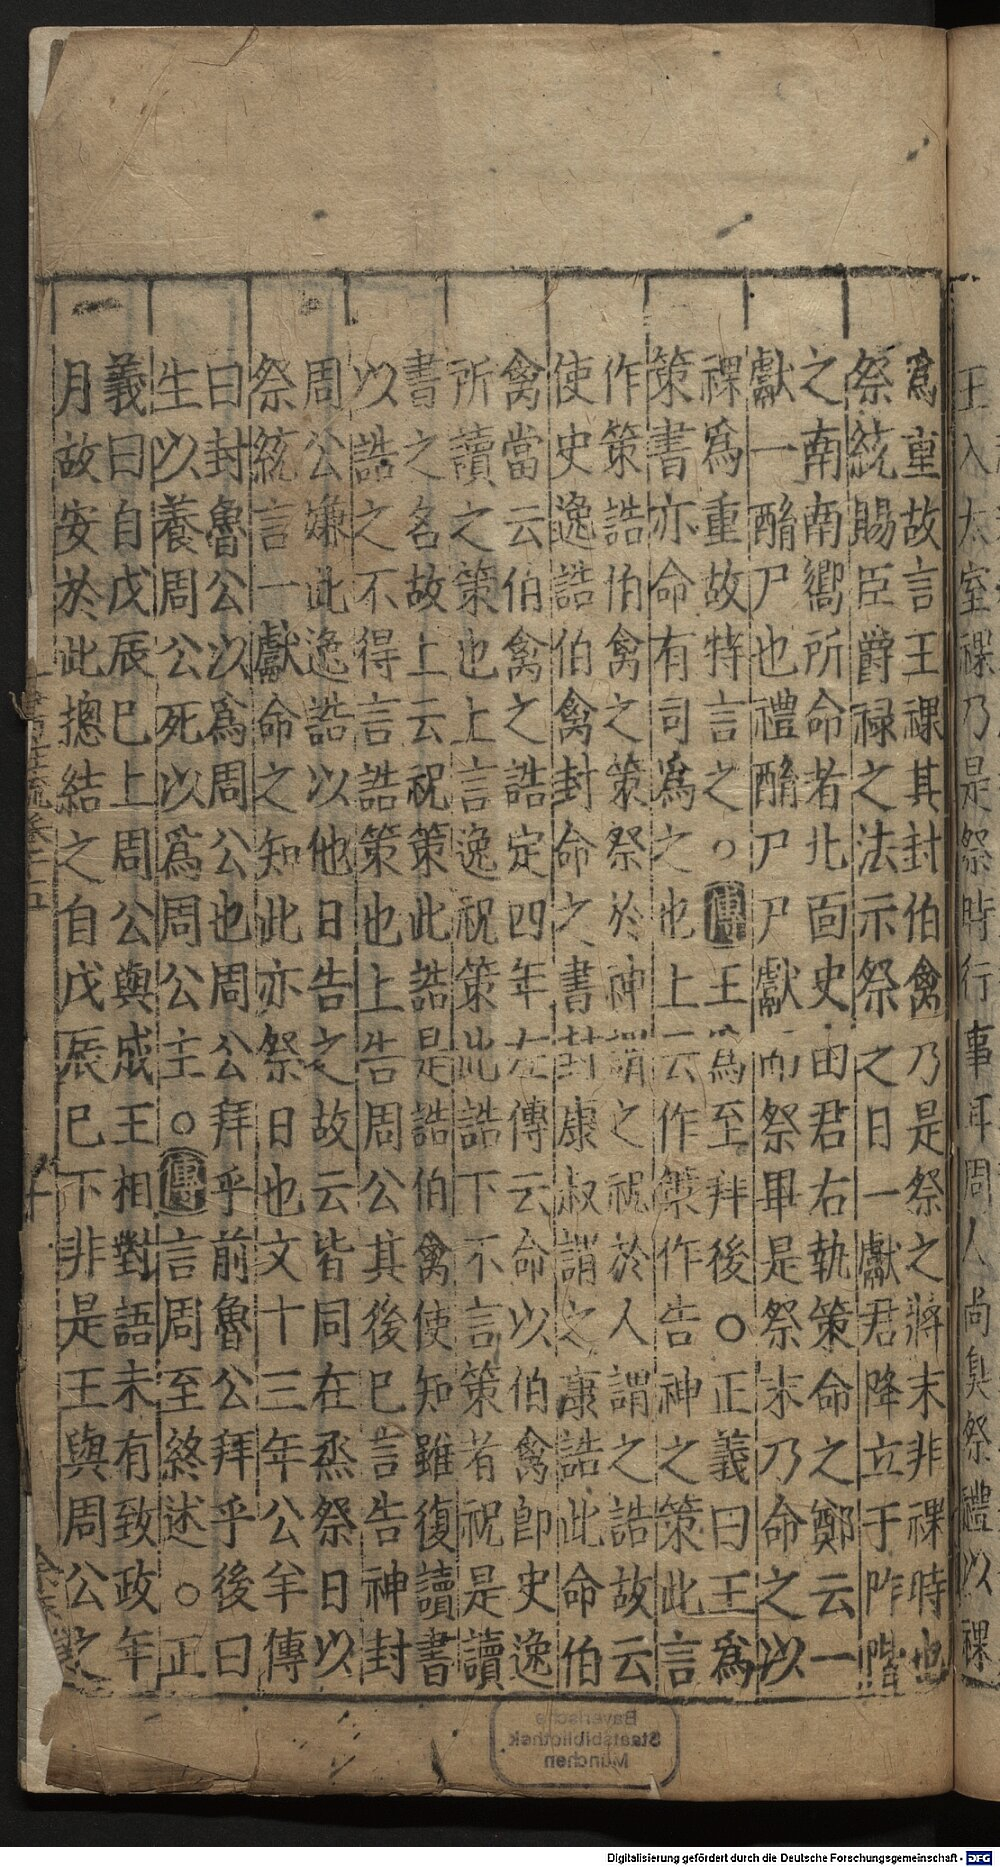 王入太室祼乃是祭時行事耳周人尚臭祭禮以祼
爲重故言王祼其封伯禽乃是祭之將末非祼時也
祭統賜臣爵禄之法示祭之日一獻君降立于阼階
之南南嚮所命者北面史由君右執策命之鄭云一
獻一酳尸也禮酳尸尸獻而祭畢是祭末乃命之以
祼爲重故特言之○傳王爲至拜後○正義曰王爲
策書亦命有司爲之也上云作策作告神之策此言
作策誥伯禽之策祭於神謂之祝於人謂之誥故云
使史逸誥伯禽封命之書封康叔謂之康誥此命伯
禽當云伯禽之誥定四年左傳云命以伯禽卽史逸
所讀之策也上言逸祝策此誥下不言策者祝是讀
書之名故上云祝策此誥是誥伯禽使知雖復讀書
以誥之不得言誥策也上告周公其後已言告神封
周公嫌此逸誥以他日告之故云皆同在烝祭日以
祭統言一獻命之知此亦祭日也文十三年公羊傳
曰封魯公以爲周公也周公拜乎前魯公拜乎後曰
生以養周公死以爲周公主○傳言周至終述○正
義曰自戊辰巳上周公與成王相對語未有致政年
月故安於此摠結之自戊辰巳下非是王與周公之
Bayerische
Staatsbibliothek
München
Digitalisierung gefördert durch die Deutsche Forschungsgemeinschaft - DFG